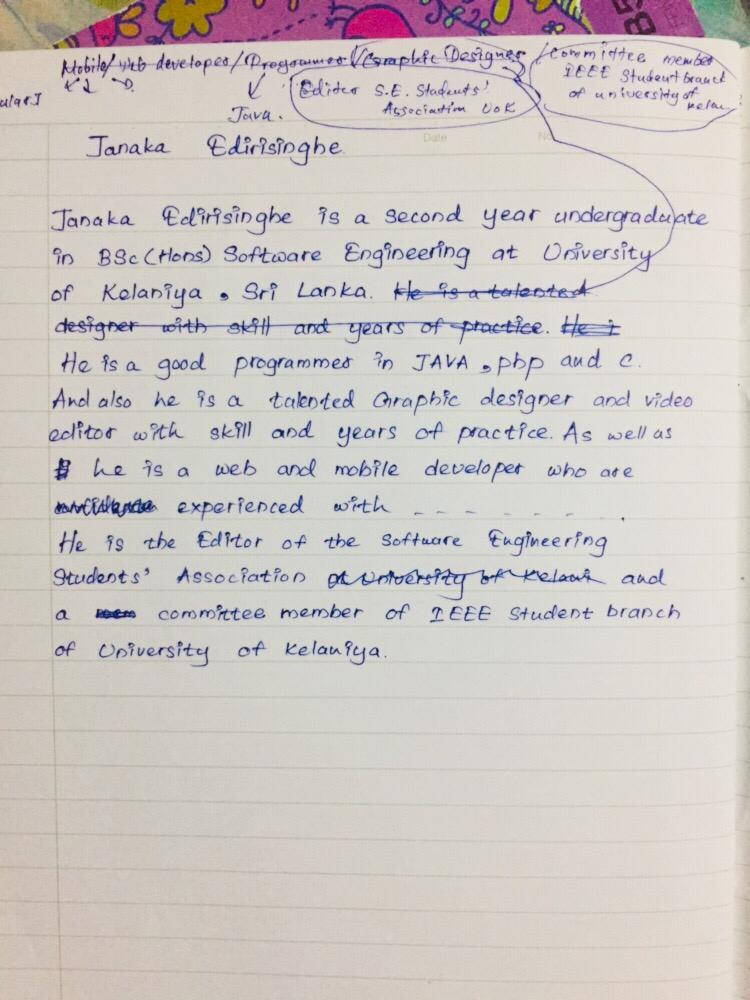 Mobile/Web developer/Programmer/Graphic Designer / Committee member
IEEE Student branch
of university of
Editor S.E. Students'
Association UoK
Java.
ular J
Date
No
Janaka Edirisinghe.
Janaka Edirisinghe is a second year undergraduate
in BSc(Hons) Software Engineering at University
of Kelaniya , Sri Lanka. He is a talented
designer with skill and years of practice. He i
He is a good programmer in JAVA , php and c.
And also he is a talented Graphic designer and video
editor with skill and years of practice. As well as
he is a web and mobile developer who are
experienced with _ _ _ _ _ _ _ .
He is the Editor of the Software Engineering
Students' Association at University of Kelani and
a mem committee member of IEEE Student branch
of University of Kelaniya.